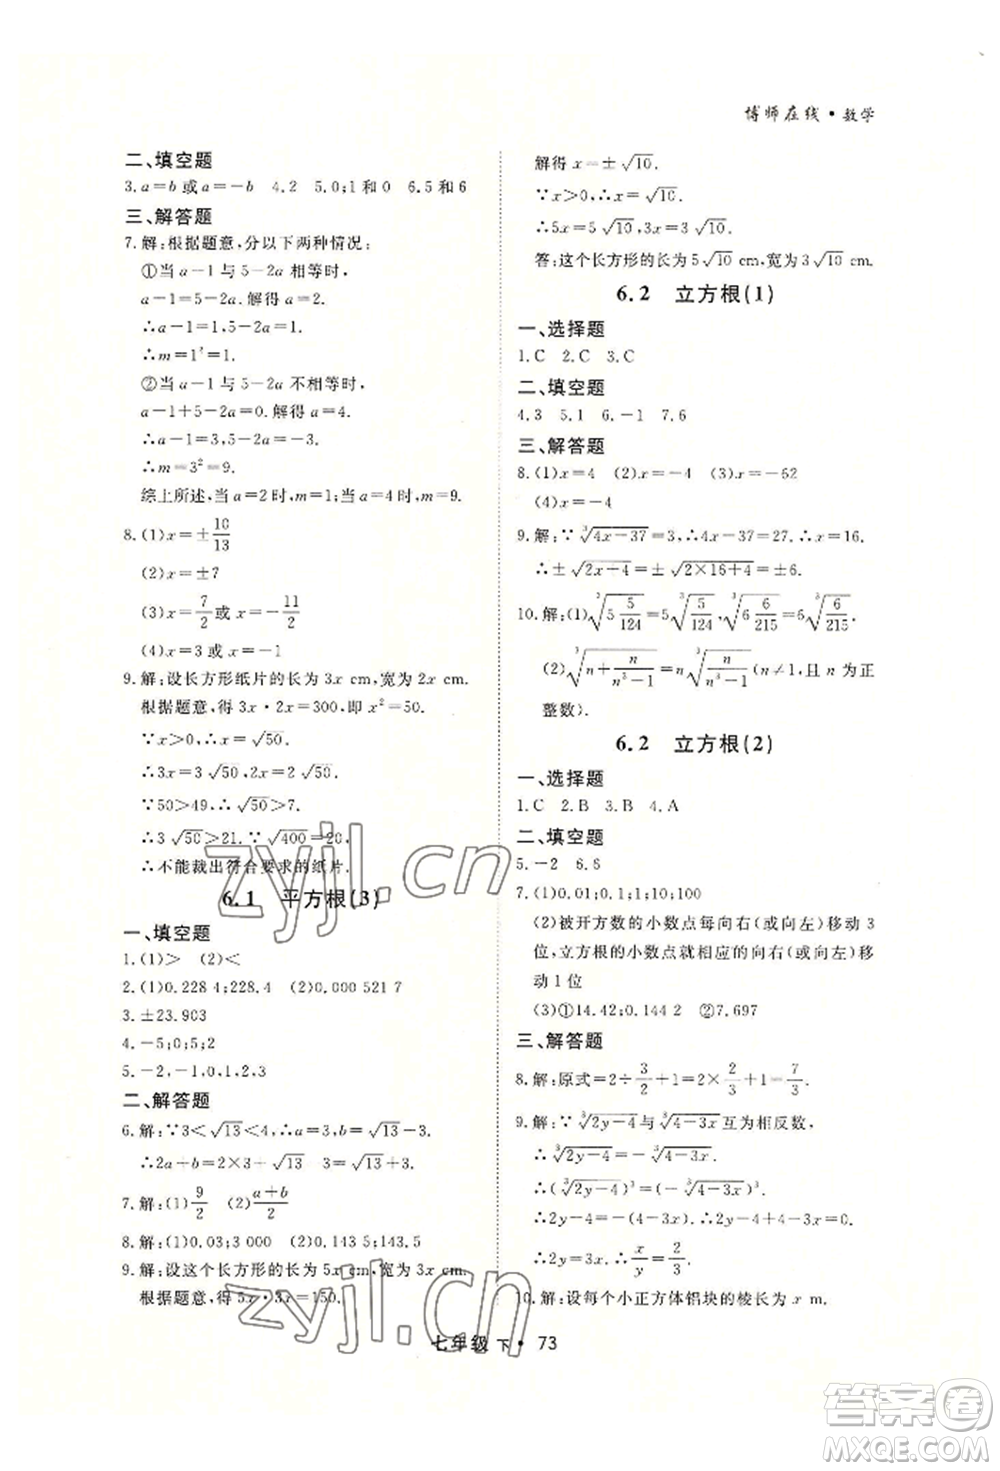 博师在线·数学
二、填空题
3.a=b或a=-b 4.2 5.0;1和0 6.5和6
三、解答题
7.解:根据题意,分以下两种情况:
①当a-1与5-2a相等时,
a-1=5-2a.解得a=2.
∴a-1=1,5-2a=1.
∴m=1²=1.
②当a-1与5-2a不相等时,
a-1+5-2a=0.解得a=4.
∴a-1=3,5-2a=-3.
∴m=3²=9.
综上所述,当a=2时,m=1;当a=4时,m=9.
8.(1)x=±10/13
(2)x=±7
(3)x=7/2或x=-11/2
(4)x=3或x=-1
9.解:设长方形纸片的长为3x cm,宽为2x cm.
根据题意,得3x·2x=300,即x²=50.
∵x>0,∴x=√50.
∴3x=3√50,2x=2√50.
∵50>49,∴√50>7.
∴3√50>21.∵√400=20,
∴不能裁出符合要求的纸片.
6.1 平方根(3)
一、填空题
1.(1)> (2)<
2.(1)0.228 4;228.4 (2)0.000 521 7
3.±23.903
4.-5;0;5;2
5.-2,-1,0,1,2,3
二、解答题
6.解:∵3<√13<4,∴a=3,b=√13-3.
∴2a+b=2×3+√13-3=√13+3.
7.解:(1)9/2 (2)(a+b)/2
8.解:(1)0.03;3 000 (2)0.143 5;-143.5
9.解:设这个长方形的长为5x cm,宽为3x cm.
根据题意,得5x·3x=150.
解得x=±√10.
∵x>0,∴x=√10.
∴5x=5√10,3x=3√10.
答:这个长方形的长为5√10 cm,宽为3√10 cm.
6.2 立方根(1)
一、选择题
1.C 2.C 3.C
二、填空题
4.3 5.1 6.-1 7.6
三、解答题
8.(1)x=4 (2)x=2/5 (3)x=-52
(4)x=-4
9.解:∵∛(4x-37)=3,∴4x-37=27.∴x=16.
∴±√(2x+4)=±√(2×16+4)=±6.
10.解:(1)∛(5 5/124)=5∛(5/124),∛(6 6/215)=6∛(6/215)
(2)∛(n+n/(n³-1))=n∛(n/(n³-1))(n≠1,且n为正
整数).
6.2 立方根(2)
一、选择题
1.C 2.B 3.B 4.A
二、填空题
5.-2 6.8
7.(1)0.01;0.1;1;10;100
(2)被开方数的小数点每向右(或向左)移动3
位,立方根的小数点就相应的向右(或向左)移
动1位
(3)①14.42;0.144 2 ②7.697
三、解答题
8.解:原式=2÷3/2+1=2×2/3+1=7/3.
9.解:∵∛(2y-4)与∛(4-3x)互为相反数,
∴∛(2y-4)=-∛(4-3x).
∴(∛(2y-4))³=(-∛(4-3x))³.
∴2y-4=-(4-3x).∴2y-4+4-3x=0.
∴2y=3x.∴x/y=2/3.
10.解:设每个小正方体铝块的棱长为x m.
七年级 下·73
zyjl.cn
zyjl.cn
答案圈
MXQE.COM